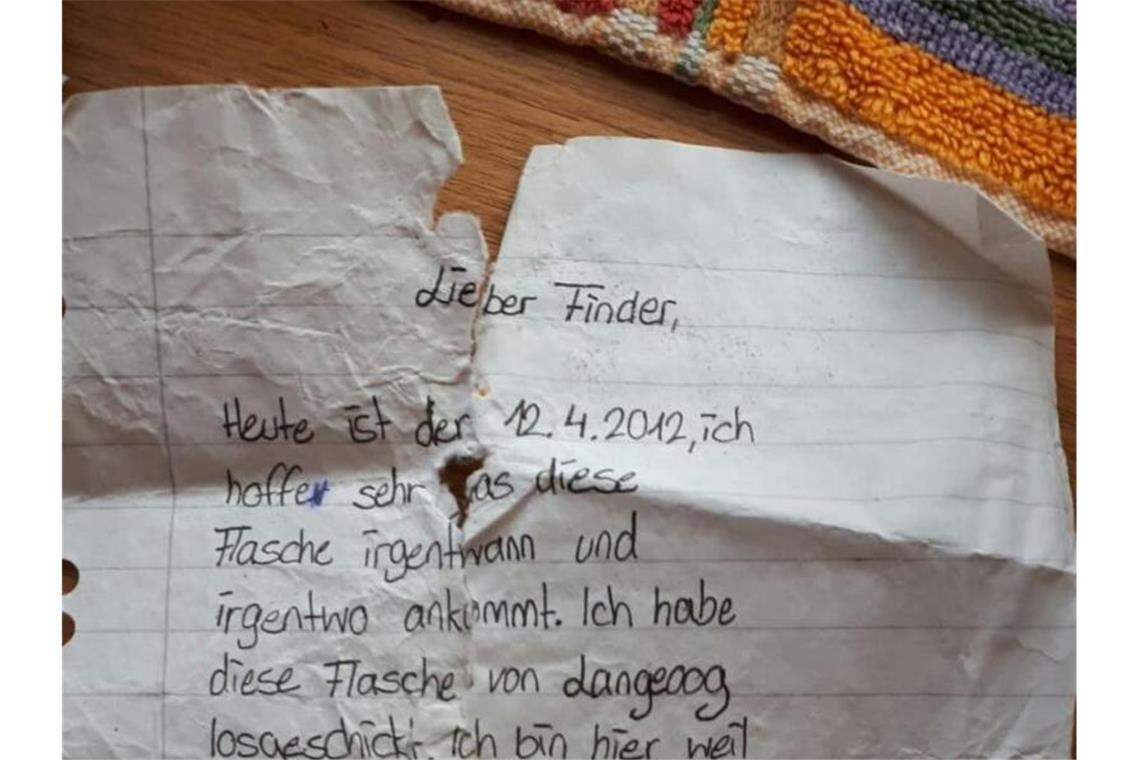 Lieber Finder,
Heute ist der 12.4.2012, ich
hoffe sehr as diese
Flasche irgentwann und
irgentwo ankommt. Ich habe
diese Flasche von Langeoog
losgeschickt. Ich bin hier weil